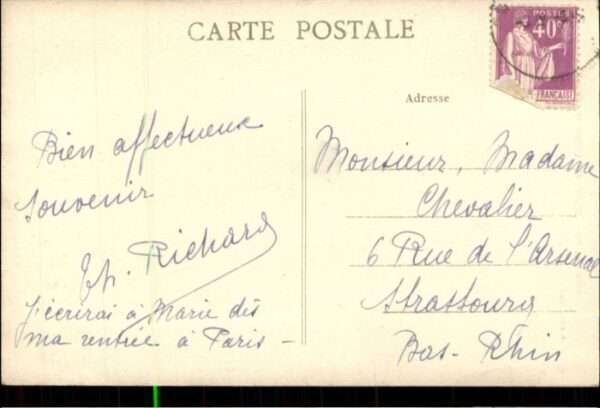 CARTE POSTALE
POSTES
40c
FRANÇAISE
Adresse
Bien affectueux
souvenir
Th. Richard
J'écrirai à Marie dès
ma rentrée à Paris -
Monsieur, Madame
Chevalier
6 Rue de l'Arsenal
Strasbourg
Bas-Rhin